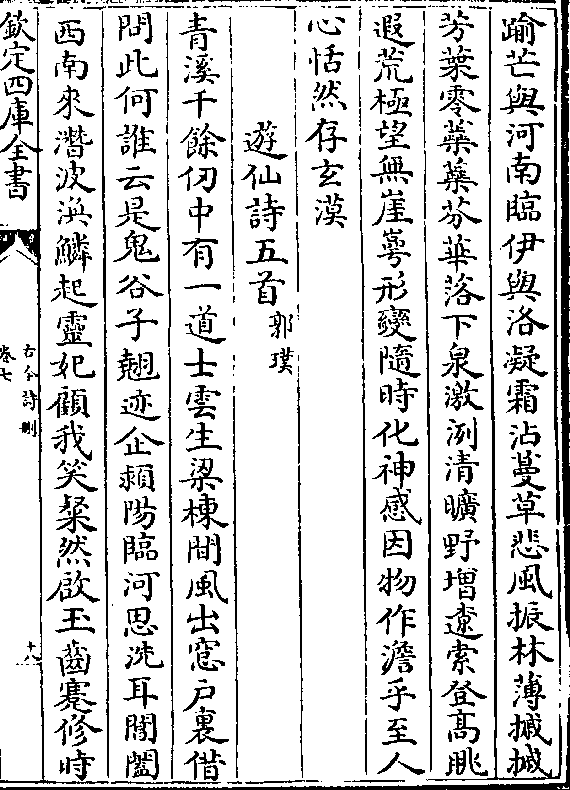 踰芒與河南臨伊與洛凝霜沾蔓草悲風振林薄摵摵
芳葉零蘂蘂芬華落下泉激冽清曠野增遼索登高眺
遐荒極望無崖崿形變隨時化神感因物作澹乎至人
心恬然存玄漠
遊仙詩五首郭璞
青溪千餘仞中有一道士雲生梁棟間風出窓戶裏借
問此何誰云是鬼谷子翹迹企潁陽臨河思洗耳閶闔
西南來潛波渙鱗起靈妃顧我笑粲然啟玉齒蹇修時
欽定四庫全書
古今詩刪
卷七
十八